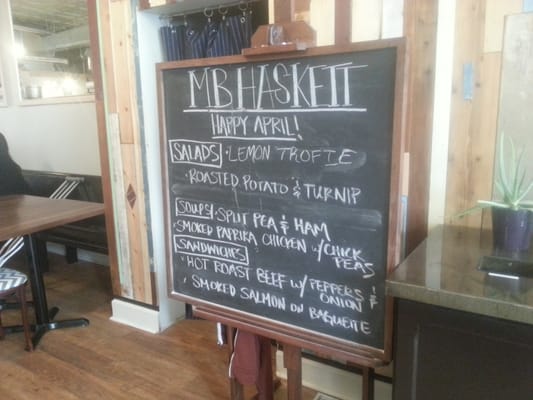 MB HASKETT
HAPPY APRIL!
SALADS • LEMON TROFIE
• ROASTED POTATO & TURNIP
SOUPS • SPLIT PEA & HAM
• SMOKED PAPRIKA CHICKEN W/ CHICK
PEAS
SANDWICHES
• HOT ROAST BEEF W/ PEPPERS &
ONION
• SMOKED SALMON ON BAGUETTE